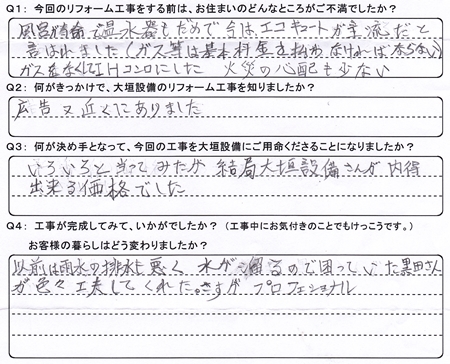 Q1: 今回のリフォーム工事をする前は、お住まいのどんなところがご不満でしたか？
風呂が寿命 温水器もだめで今は、エコキュートが主流だと
言はれました(ガス等は基本料金を払わなければならない)
ガスをなくしてIHコンロにした 火災の心配も少ない
Q2: 何がきっかけで、大垣設備のリフォーム工事を知りましたか？
広告又近くにありました
Q3: 何が決め手となって、今回の工事を大垣設備にご用命くださることになりましたか？
いろいろと当ってみたが 結局大垣設備さんが 内得
出来る価格でした
Q4: 工事が完成してみて、いかがでしたか？（工事中にお気付きのことでもけっこうです。）
お客様の暮らしはどう変わりましたか？
以前は雨水の排水も悪く 水が溜るので困っていた黒田さん
が色々工夫してくれた。さすが プロフェショナル